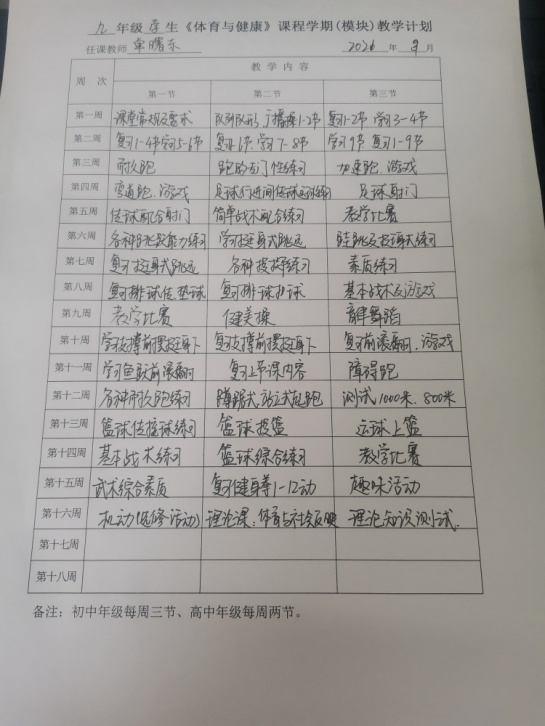 九 年级 学生《体育与健康》课程学期(模块)教学计划
任课教师 牟曙东 2026 年 9 月
周 次 教 学 内 容
第一节 第二节 第三节
第一周 课堂常规及要求 队列队形 广播操1-2节 复习1-2节 学习3-4节
第二周 复习1-4节学习5-6节 复习6节.学习7-8节 学习9节 复习1-9节
第三周 耐久跑 跑的专门性练习 加速跑.游戏
第四周 弯道跑.游戏 足球行进间传球 足球射门
第五周 传球配合射门 简单战术配合练习 教学比赛
第六周 各种跳跃能力练习 学习挺身式跳远 挺身式练习
第七周 复习挺身式跳远 各种投掷练习 素质练习
第八周 复习排球传.垫球 复习排球扣球 基本战术及游戏
第九周 教学比赛 健美操 韵律舞蹈
第十周 学习支撑前摆挺身下 复习支撑前摆挺身下 复习前滚翻.游戏
第十一周 学习鱼跃前滚翻 复习上节课内容 障碍跑
第十二周 各种耐久跑练习 蹲踞式站立式起跑 测试1000米.800米
第十三周 篮球传接球练习 篮球投篮 运球上篮
第十四周 基本战术练习 篮球综合练习 教学比赛
第十五周 武术综合素质 复习健身拳1-12动 趣味活动
第十六周 机动(选修活动) 理论课:体育与社会 理论知识测试.
第十七周
第十八周
备注:初中年级每周三节、高中年级每周两节。